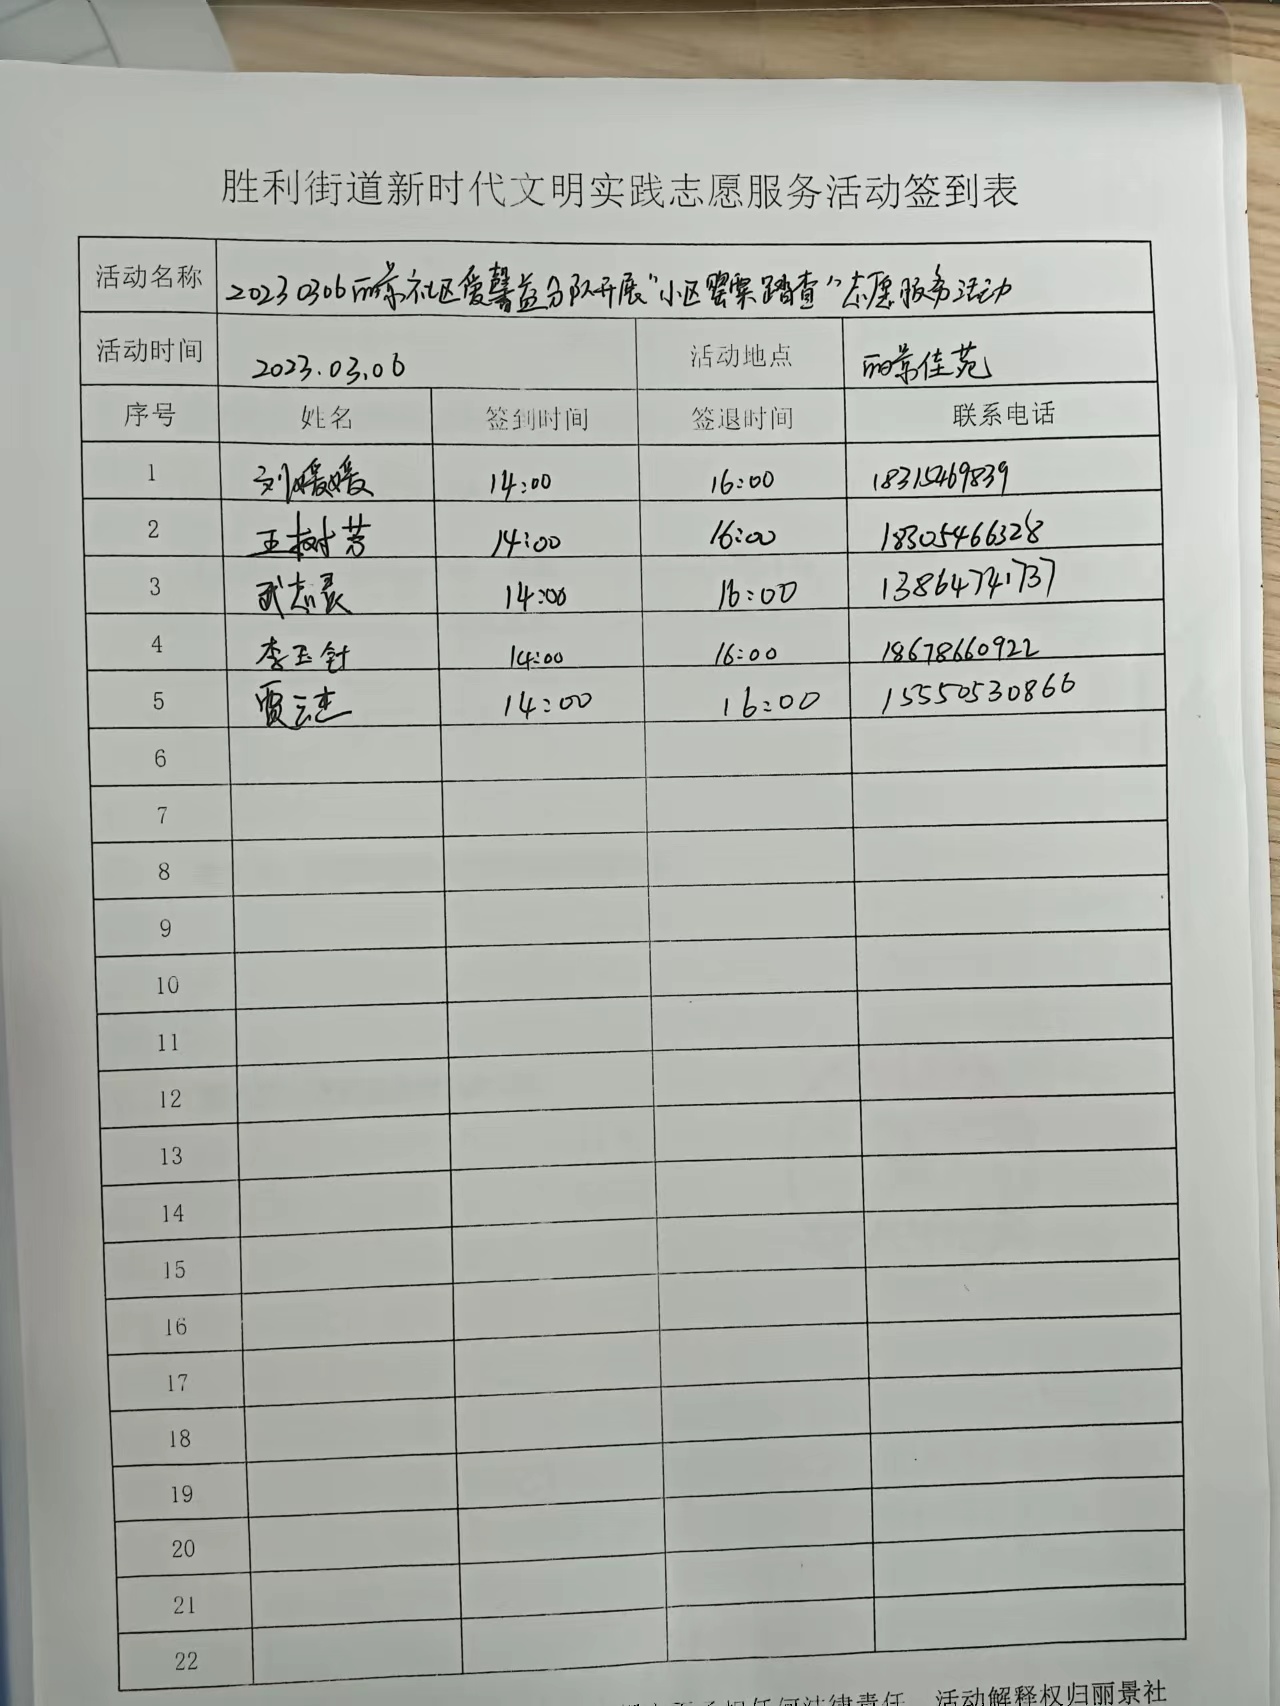 胜利街道新时代文明实践志愿服务活动签到表
活动名称 20230306丽景社区爱馨益分队开展“小区罂粟踏查”志愿服务活动
活动时间 2023.03.06 活动地点 丽景佳苑
序号 姓名 签到时间 签退时间 联系电话
1 刘媛媛 14:00 16:00 18315469839
2 王树芳 14:00 16:00 18305466328
3 武志晨 14:00 16:00 13864741737
4 李玉针 14:00 16:00 18678660922
5 贾云杰 14:00 16:00 15550530866
6
7
8
9
10
11
12
13
14
15
16
17
18
19
20
21
22
承担任何法律责任 活动解释权归丽景社